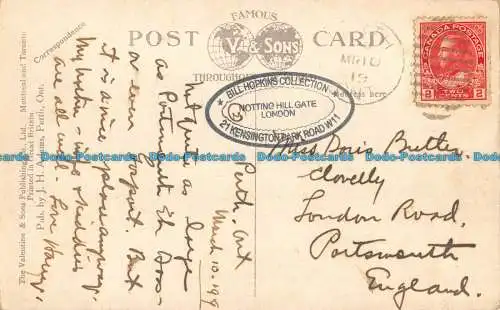 FAMOUS
POST CARD
V. & SONS
THROUGHOUT
MR 10
19
CANADA POSTAGE
2 TWO CENTS 2
★ BILL HOPKINS COLLECTION ★
NOTTING HILL GATE
LONDON
21 KENSINGTON PARK ROAD W11
Correspondence
The Valentine & Sons Publishing Co., Ltd. Montreal and Toronto
Printed in Great Britain
Pub. by J. H. Adams, Perth, Ont.
Perth. Ont
March 10. 1919
Not quite as large
as Portsmouth Eh Boss
or even Gosport. But
it is a nice place anyway.
My wishes
are all well. Love Harry.
Miss Doris Butler
Clovelly
London Road,
Portsmouth
England.
postcards